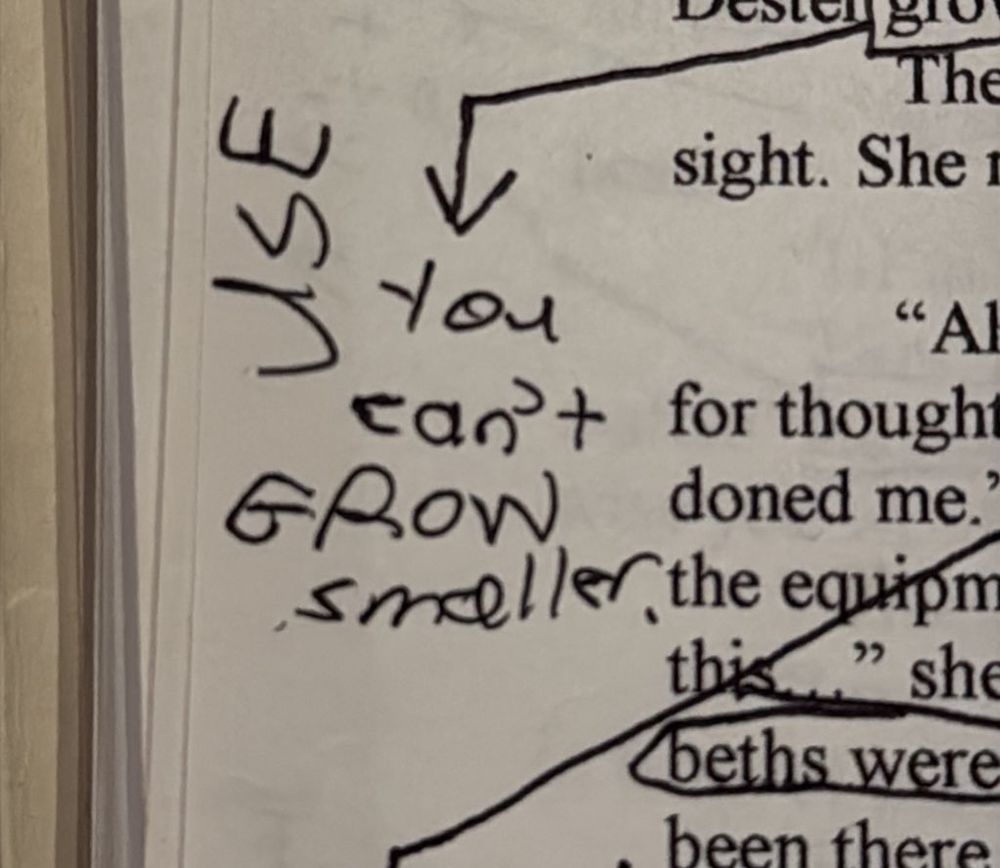 USE
You
can't
GROW
smaller.
The
sight. She
"Al
for thought
doned me."
the equipm
this...." she
beths were
been there